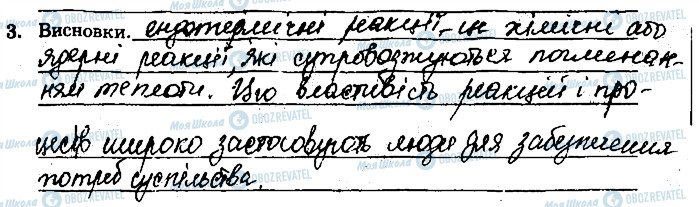 3. Висновки. ендотермічні реакції - це хімічні або
ядерні реакції, які супроводжуються поглинан-
ням теплоти. Цю властивість реакцій і про-
цесів широко застосовують люди для забезпечення
потреб суспільства.